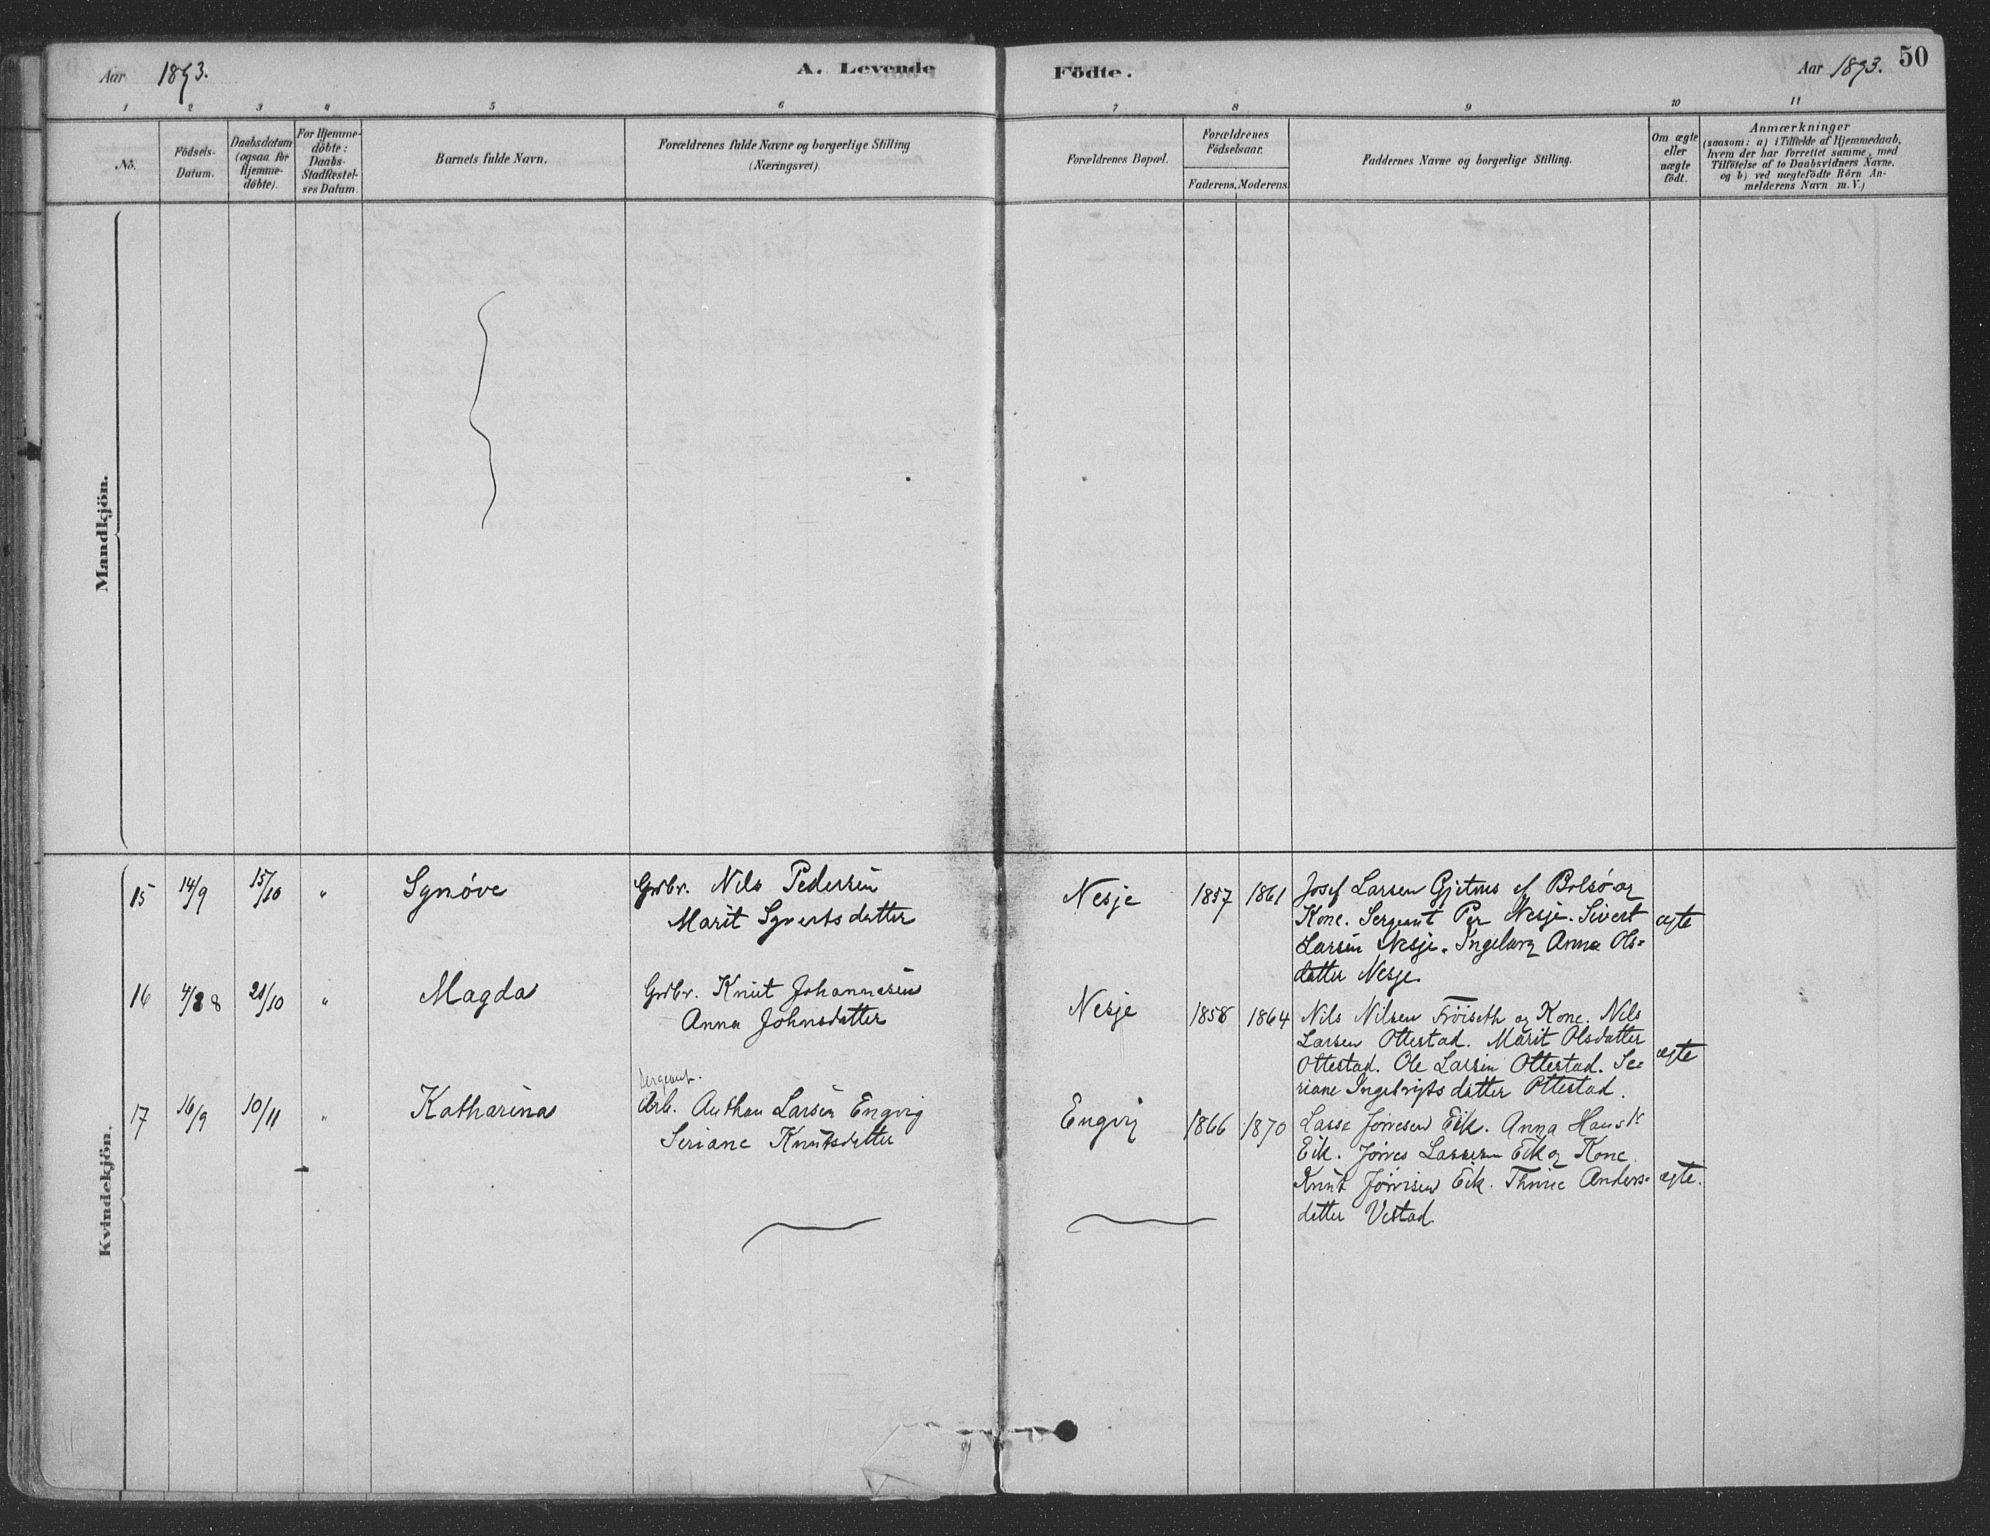 Aar 1893.
A. Levende Födte.
Aar 1893.
50
1 2 3 4 5 6 7 8 9 10 11
No.
Födsels-
Datum.
Daabsdatum
(ogsaa for
Hjemme-
döbte).
For Hjemme-
döbte:
Daabs-
Stadfæstel-
ses Datum.
Barnets fulde Navn.
Forældrenes fulde Navne og borgerlige Stilling
(Næringsvei).
Forældrenes Bopæl.
Forældrenes
Födselsaar.
Faderens. Moderens.
Faddernes Navne og borgerlige Stilling.
Om ægte
eller
uægte
födt.
Anmærkninger
(saasom: a) i Tilfælde af Hjemmedaab,
hvem der har forrettet samme, med
Tilföielse af to Daabsvidners Navne.
og b) ved uægtefödte Börn An-
melderens Navn m. V.)
Mandkjön.
Kvindekjön.
15 14/9 15/10 " Synöve
Grdbr. Nils Pedersen
Marit Syvertsdatter
Nesje 1857 1861
Josef Larsen Gjetnes af Bolsö og
Kone. Sergeant Per Nesje. Sivert
Larsen Nesje. Ingeborg Anna Ols-
datter Nesje.
ægte
16 4/8 8 21/10 " Magda
Grdbr. Knut Johannesen
Anna Johnsdatter
Nesje 1858 1864
Nils Nilsen Fröiseth og Kone. Nils
Larsen Ottestad. Marit Olsdatter
Ottestad. Ole Larsen Ottestad. Se-
riane Ingebrigtsdatter Ottestad.
ægte
17 16/9 10/11 " Katharina
Sergeant.
Arb. Anthon Larsen Engvig
Seriane Knutsdatter
Engvig 1866 1870
Lasse Jörvesen Eik. Anna Hansdr
Eik. Jörves Larsen Eik og Kone.
Knut Jörvisen Eik. Thrine Anders-
datter Vestad.
ægte.